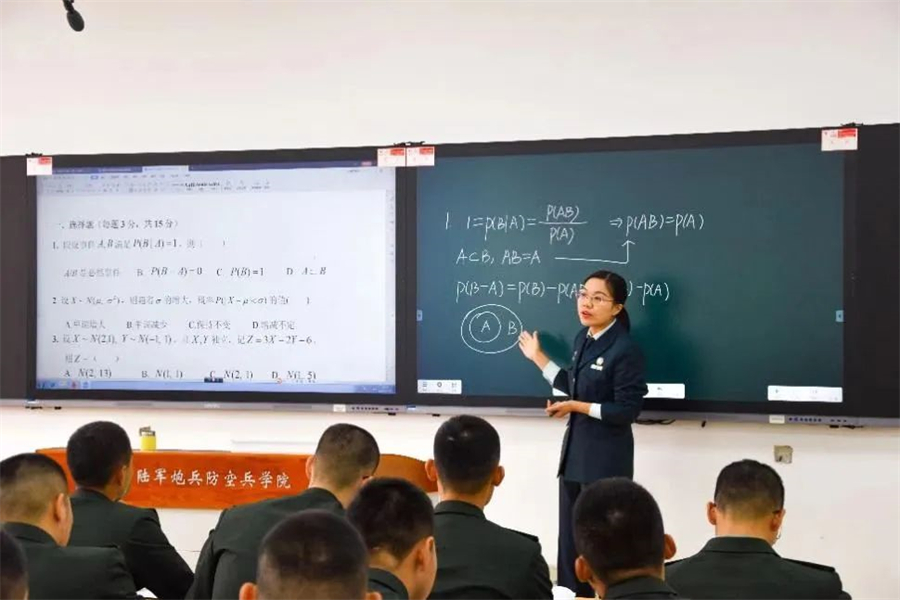 一、选择题（每题3分，共15分）
1. 设设事件A,B满足P(B|A)=1，则（ ）
B. P(B-A)=0 C. P(B)=1 D.
2. 设X~N(μ, σ²)，则随着σ的增大，概率P(|X-μ|<σ)的值（ ）
A.单调增大 B.单调减少 C.保持不变 D.增减不定
3. 设X~N(2,1), Y~N(-1,1)，且X,Y独立，记Z=3X-2Y-6，
则Z~（ ）
A. N(2,13) B. N(1,1) C. N(2,1) D. N(1,5)
1. 1=P(B|A)=P(AB)/P(A) ⇒P(AB)=P(A)
A⊂B, AB=A
P(B-A)=P(B)-P(A )-P(A)
A B
陆军炮兵防空兵学院